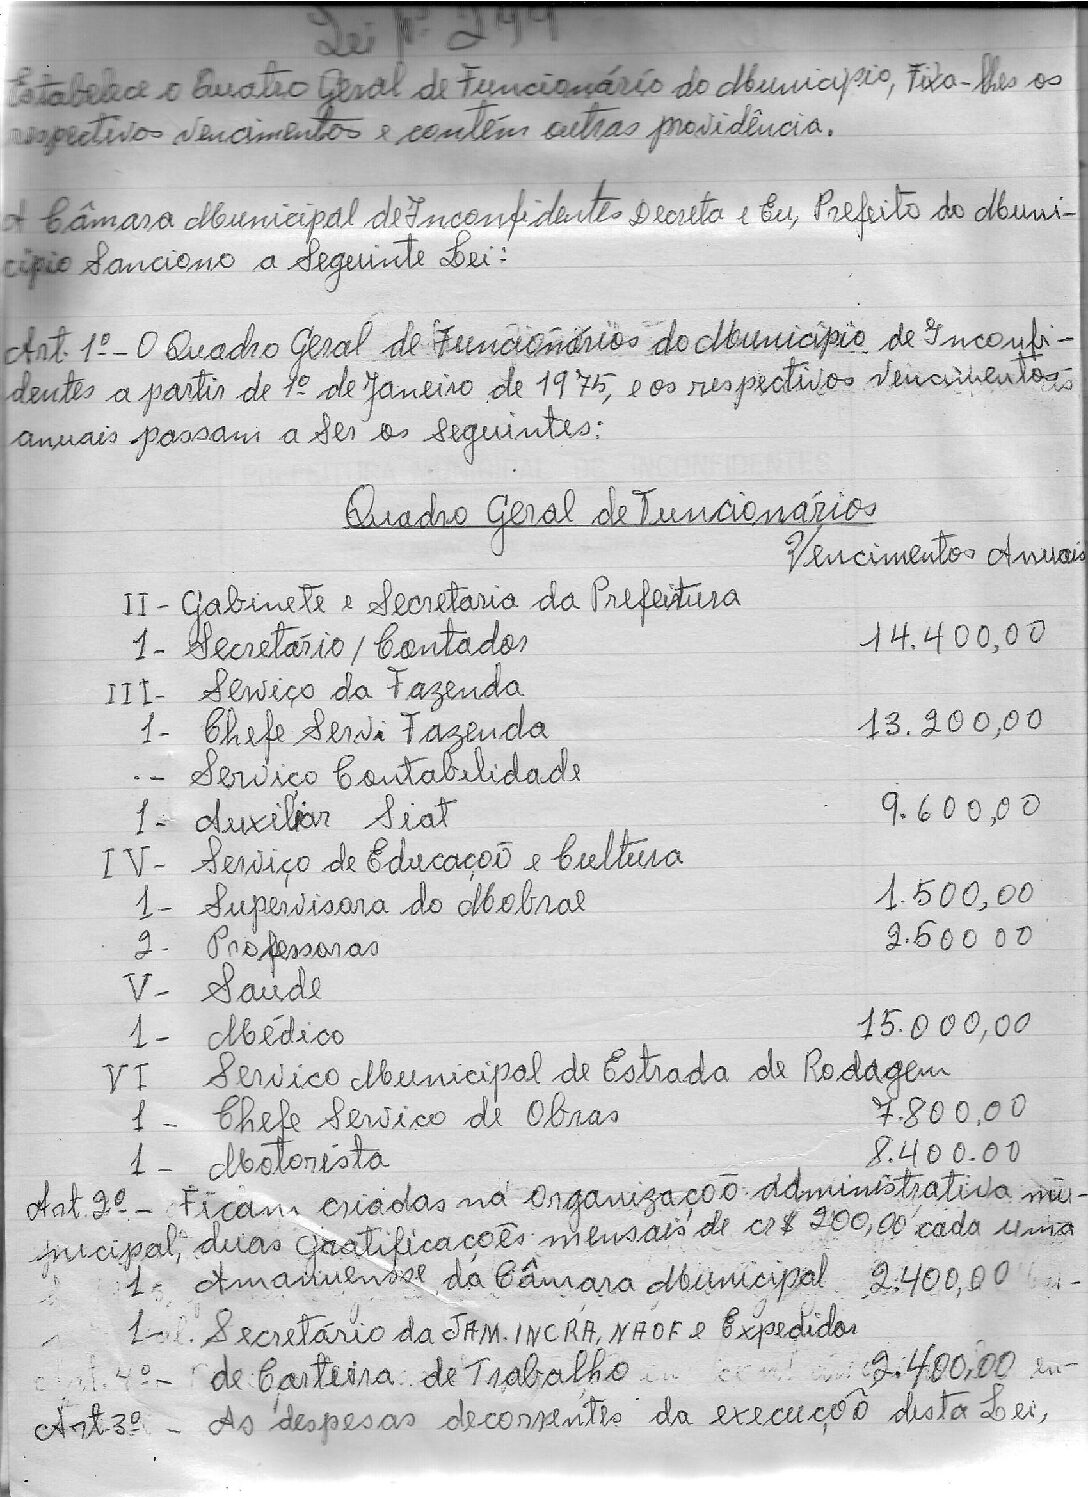 Lei Nº 299
Estabelece o Quatro Geral de Funcionário do Municipio, Fixa-lhes os
respectivos vencimentos e contém outras providência.
A Câmara Municipal de Inconfidentes Decreta e Eu, Prefeito do Muni-
cipio Sanciono a Seguinte Lei:
Art. 1º - O Quadro Geral de Funcionários do Municipio de Inconfi-
dentes a partir de 1º de Janeiro de 1975, e os respectivos Vencimentos
anuais passam a Ser os Seguintes:
Quadro Geral de Funcionários
Vencimentos Anuais
II - Gabinete e Secretaria da Prefeitura
1 - Secretário / Contador 14.400,00
III - Serviço da Fazenda
1 - Chefe Servi Fazenda 13.200,00
.- Serviço Contabilidade
1 - Auxiliar Siat 9.600,00
IV - Serviço de Educação e Cultura
1 - Supervisora do Mobral 1.500,00
2 - Professoras 2.500 00
V - Saúde
1 - Médico 15.000,00
VI Servico Municipal de Estrada de Rodagem
1 - Chefe Servico de Obras 7.800,00
1 - Motorista 8.400.00
Art. 2º - Ficam criadas na organização administrativa mu-
nicipal, duas gratificações mensais de cr$ 200,00 cada uma
1 - Amanuensse da Câmara Municipal 2.400,00
1 - Secretário da JAM. INCRA, NAOF e Expedidor
de Carteira de Trabalho 2.400,00
Art 3º - As despesas decorrentes da execução desta Lei,